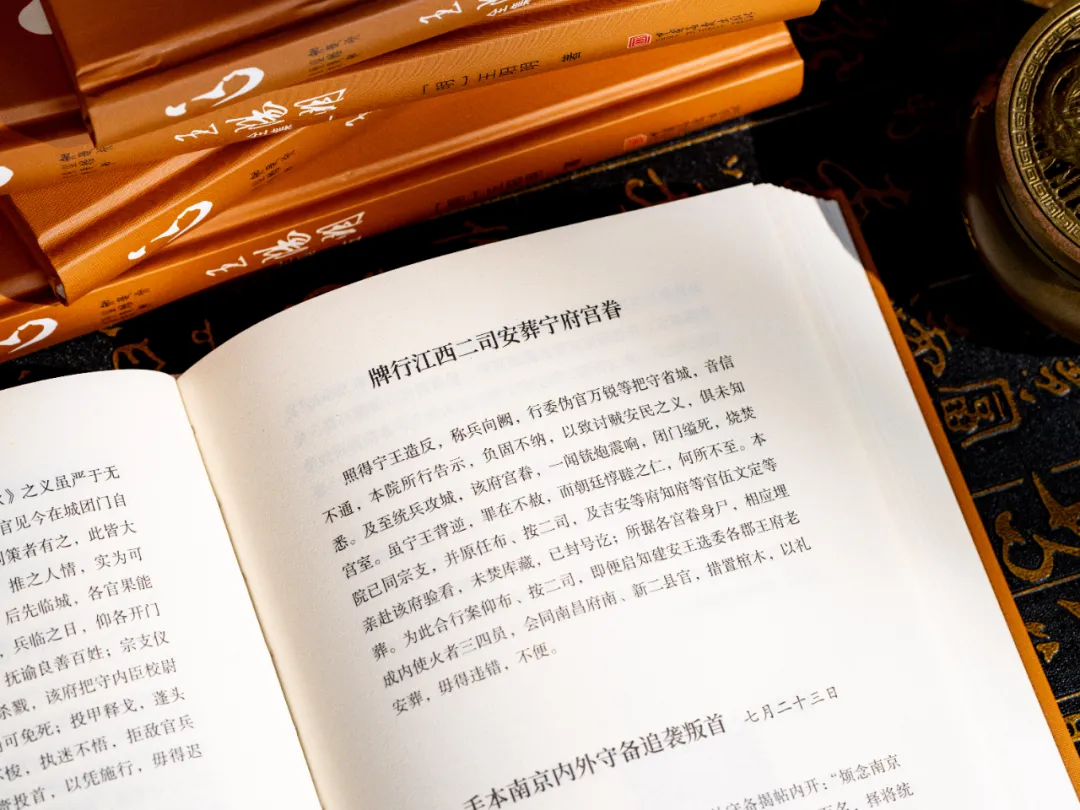 》之义虽严于无
官见今在城团门自
策者有之，此皆大
推之人情，实为可
后先临城，各官果能
兵临之日，仰各开门
抚谕良善百姓；宗支仪
杀戮，该府把守内臣校尉
可免死；投甲释戈，蓬头
悛，执迷不悟，拒敌官兵
投首，以凭施行，毋得迟
牌行江西二司安葬宁府宫眷
照得宁王造反，称兵向阙，行委伪官万锐等把守省城，音信
不通，本院所行告示，负固不纳，以致讨贼安民之义，俱未知
悉。及至统兵攻城，该府宫眷，一闻铳炮震响，闭门缢死，烧焚
宫室。虽宁王背逆，罪在不赦，而朝廷惇睦之仁，何所不至。本
院已同宗支，并原任布、按二司，及吉安等府知府等官伍文定等
亲赴该府验看，未焚库藏，已封号讫；所据各宫眷身尸，相应埋
葬。为此合行案仰布、按二司，即便启知建安王选委各郡王府老
成内使火者三四员，会同南昌府南、新二县官，措置棺木，以礼
安葬，毋得违错，不便。
手本南京内外守备追袭叛首 七月二十三日
守备揭帖内开：“烦念南京
百名，择将统